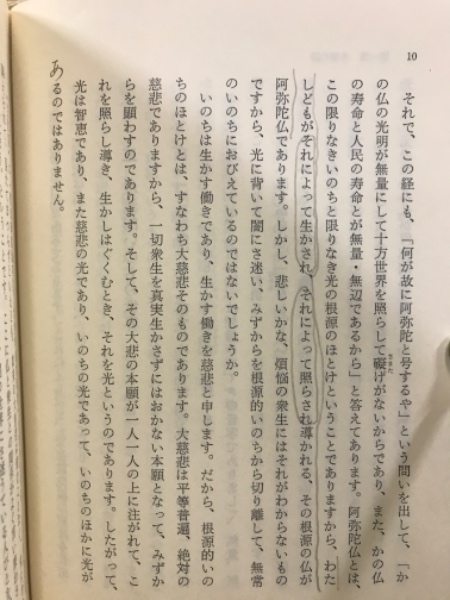 10
それで、この経にも、「何が故に阿弥陀と号するや」という問いを出して、「か
の仏の光明が無量にして十方世界を照らして礙げがないからであり、また、かの仏
の寿命と人民の寿命とが無量・無辺であるから」と答えてあります。阿弥陀仏とは、
この限りなきいのちと限りなき光の根源のほとけということでありますから、わた
しどもがそれによって生かされ、それによって照らされ導かれる、その根源の仏が
阿弥陀仏であります。しかし、悲しいかな、煩悩の衆生にはそれがわからないもの
ですから、光に背いて闇にさ迷い、みずからを根源的いのちから切り離して、無常
のいのちにおびえているのではないでしょうか。
いのちは生かす働きであり、生かす働きを慈悲と申します。だから、根源的いの
ちのほとけとは、すなわち大慈悲そのものであります。大慈悲は平等普遍、絶対の
慈悲でありますから、一切衆生を真実生かさずにはおかない本願となって、みずか
らを顕わすのであります。そして、その大悲の本願が一人一人の上に注がれて、こ
れを照らし導き、生かしはぐくむとき、それを光というのであります。したがって、
光は智恵であり、また慈悲の光であり、いのちの光であって、いのちのほかに光が
あるのではありません。